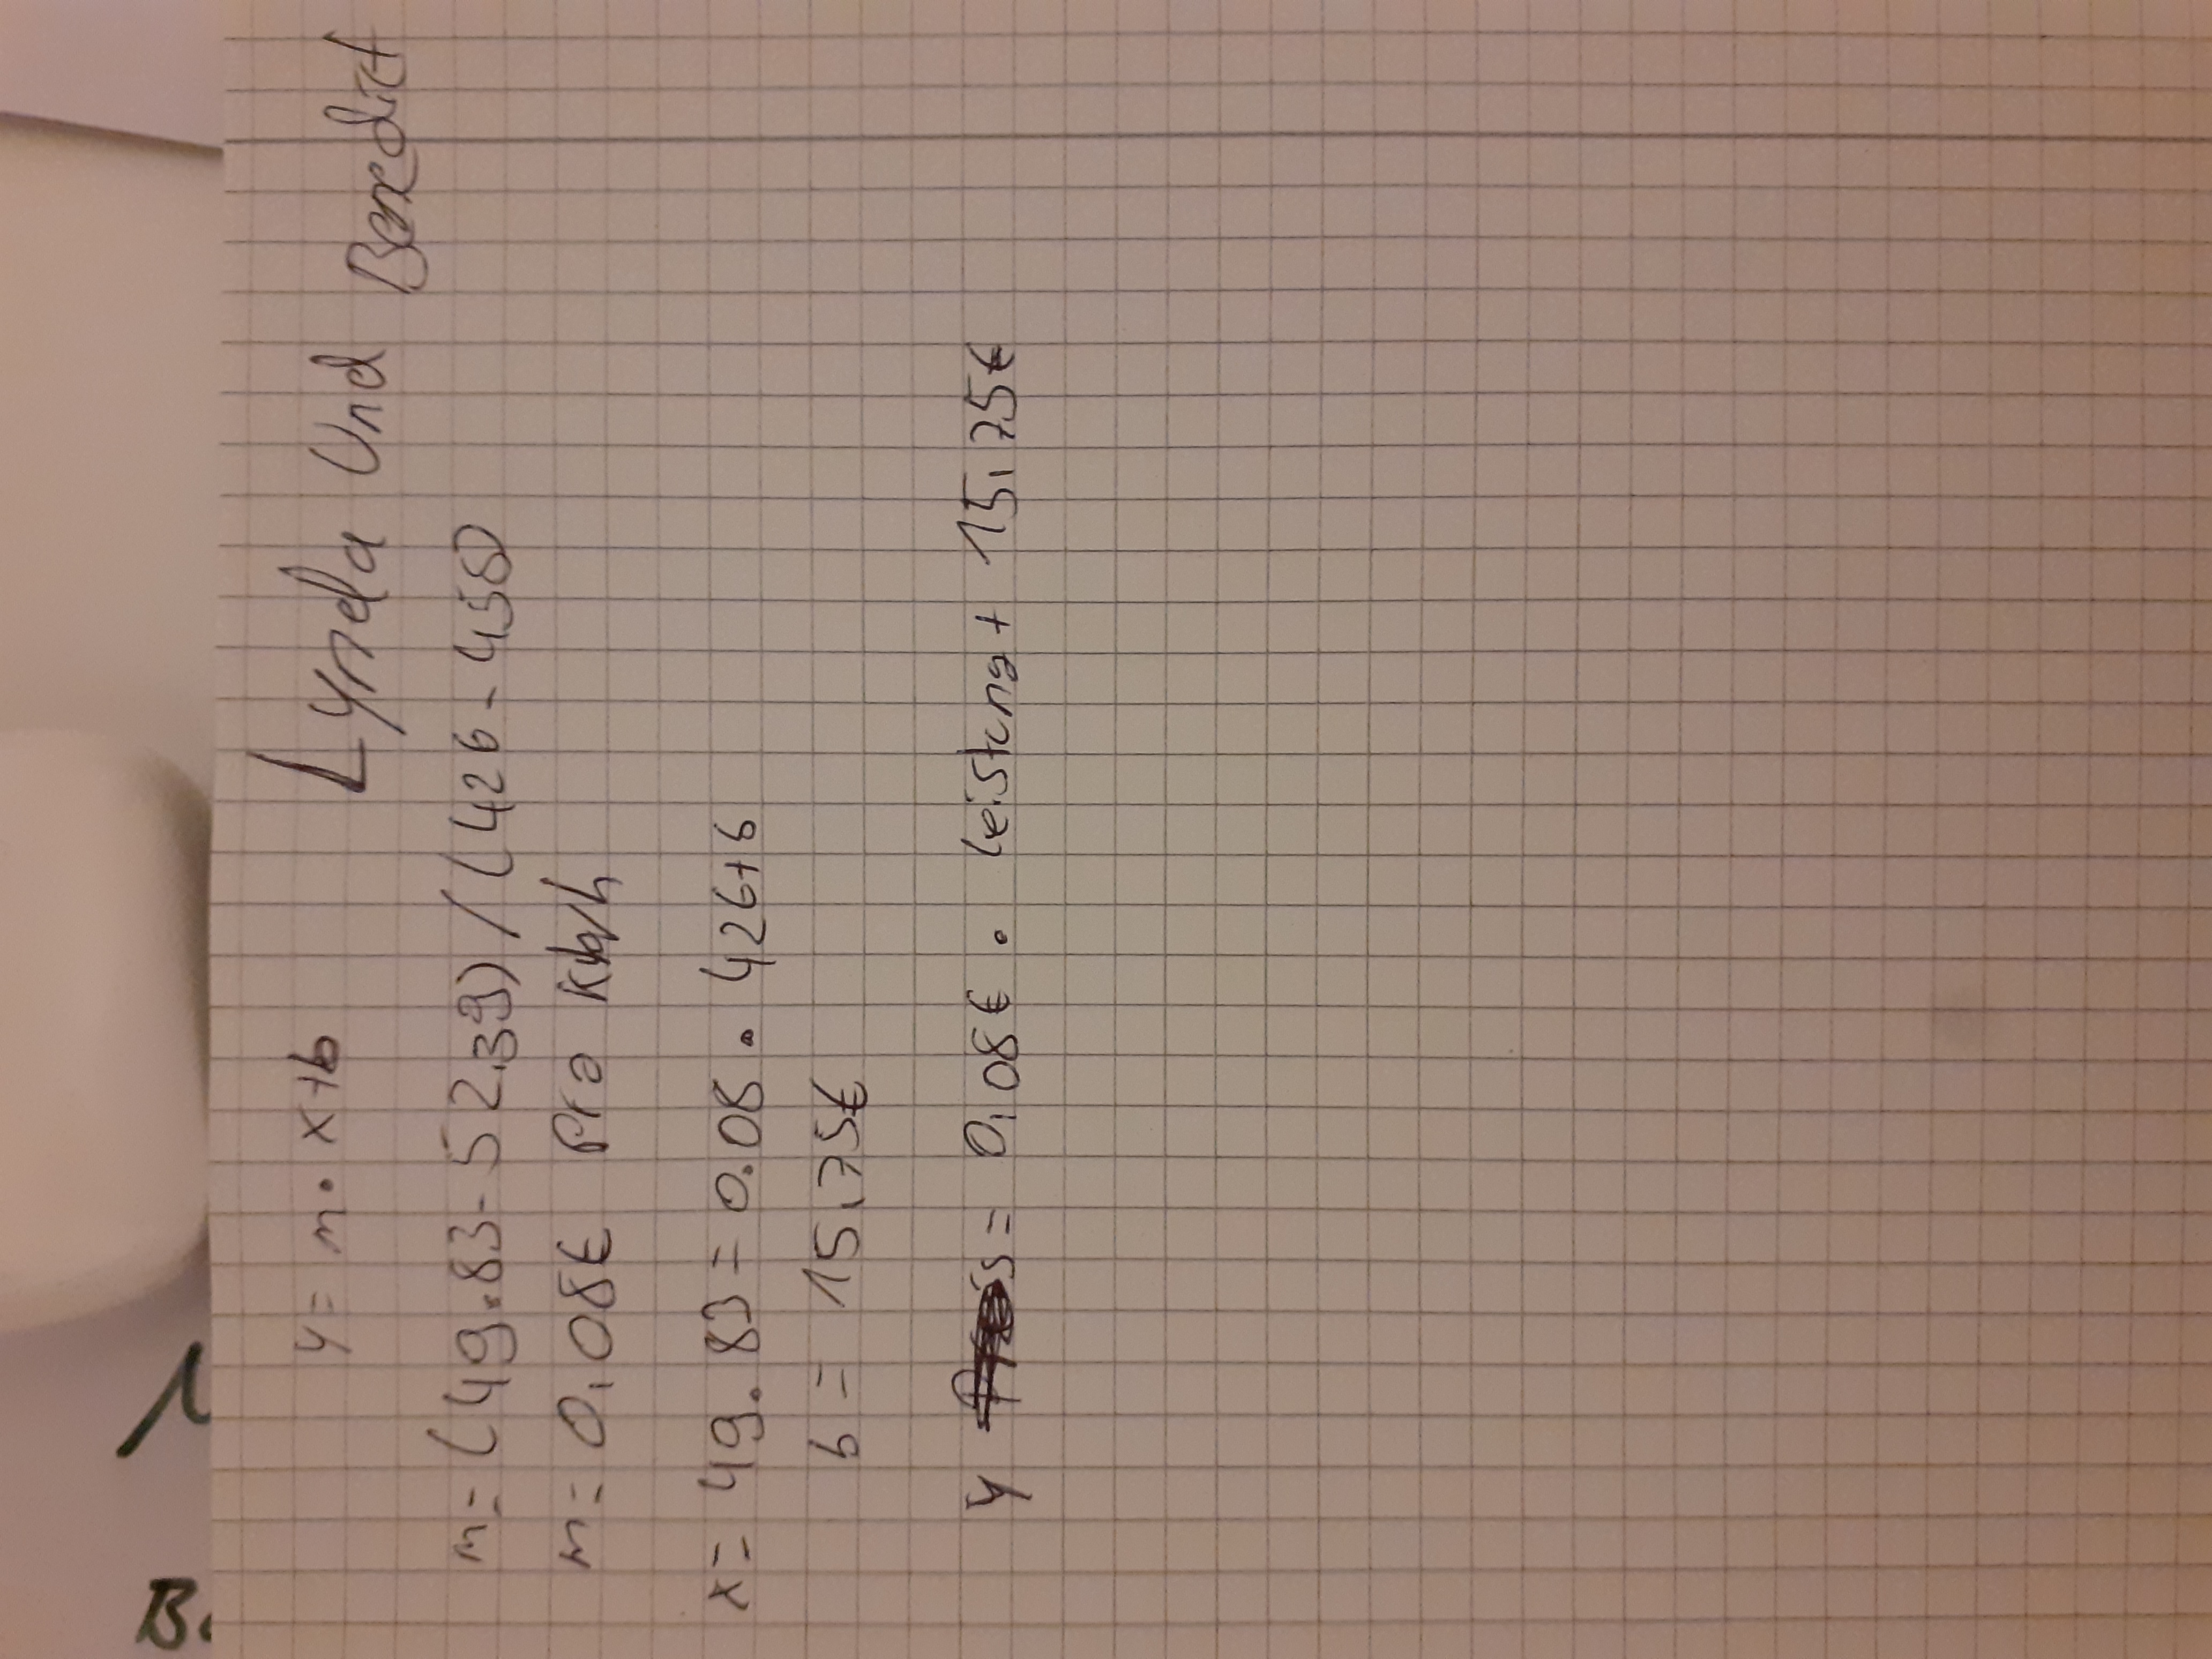 Lynda Und Benedict
y = m · x + b
m = (49.83 - 52,39) / (426 - 458)
m = 0,08€ Pro kWh
x = 49.83 = 0.08 · 426 + b
b = 15,75€
y = 0,08€ · Leistung + 15,75€